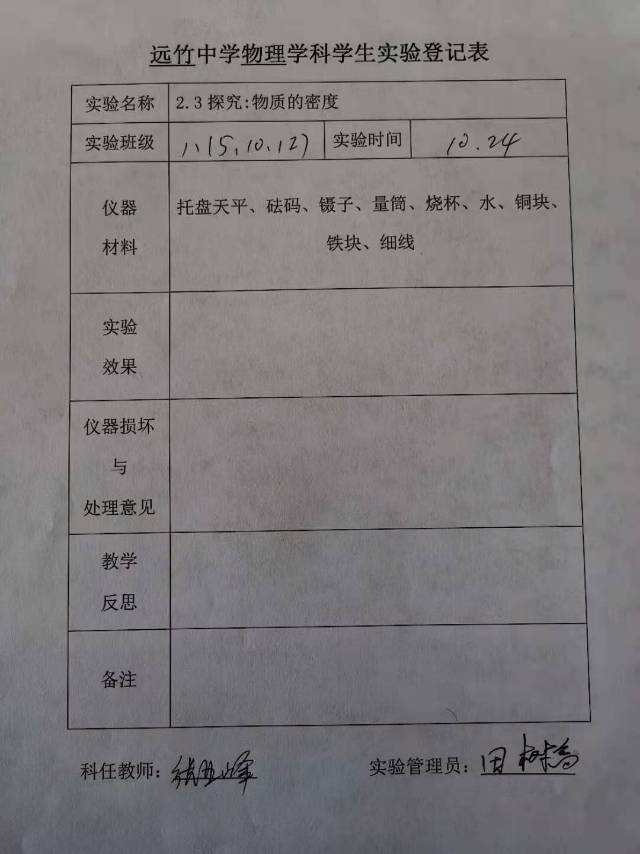 远竹中学物理学科学生实验登记表
实验名称 2.3 探究:物质的密度
实验班级 1.1(5、10、12) 实验时间 10.24
仪器
材料
托盘天平、砝码、镊子、量筒、烧杯、水、铜块、
铁块、细线
实验
效果
仪器损坏
与
处理意见
教学
反思
备注
科任教师: 实验管理员: 田